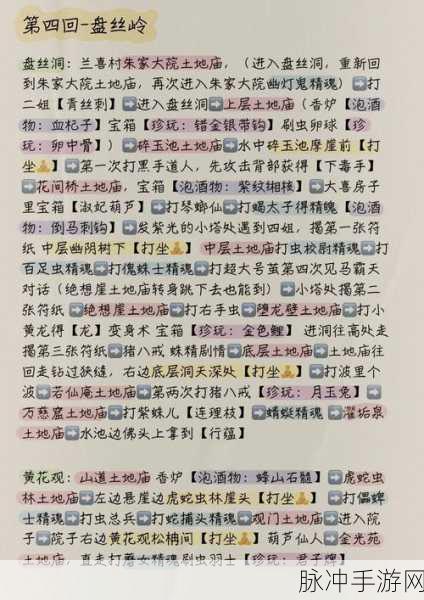 第四回-盘丝岭
盘丝洞：兰喜村朱家大院土地庙，（进入盘丝洞，重新回
到朱家大院土地庙，再次进入朱家大院幽灯鬼精魂）➡打
二姐【青丝刺】➡进入盘丝洞➡上层土地庙（香炉【泡酒
物：血杞子】宝箱【珍玩：错金银带钩】刷虫卵球【珍
玩：卵中骨】）➡碎玉池土地庙➡水中碎玉池摩崖前【打
坐🙏】➡第一次打黑手道人，先攻击背部获得【下毒手】
➡花间桥土地庙，宝箱【泡酒物：紫纹缃核】➡大喜房子
里宝箱【淑妃葫芦】➡打琴螂仙➡打蝎太子得精魄【泡酒
物：倒马刺钩】➡发紫光的小塔处遇到四姐，揭第一张符
纸 中层幽阴树下【打坐🙏】 中层土地庙打虫校尉精魂➡打
百足虫精魂➡打傀蛛士精魂➡打超大号茧第四次见马霸天
对话（绝想崖土地庙转身跳下去也能到）➡小塔处揭第二
张符纸➡绝想崖土地庙➡打右手虫➡堕龙壁土地庙➡打小
黄龙得【龙】变身术 宝箱【珍玩：金色鲤】 进洞往高处走
揭第三张符纸➡猪八戒 蛛精剧情➡底层土地庙➡土地庙往
回走钻过狭缝，右边底层洞天深处【打坐🙏】➡打波里个
波➡若仙庵土地庙➡第两次打猪八戒【珍玩：月玉兔】➡
万慈窟土地庙➡打紫蛛儿【连理枝】➡蜻蜓精魂➡濯垢泉
土地庙➡水池边佛头上拿到【行蕴】
黄花观：山道土地庙 香炉【泡酒物：蜂山石髓】➡虎蛇虫
林土地庙➡左边悬崖边虎蛇虫林崖头【打坐🙏】 ➡打儡蜱
士精魂➡打虫总兵➡打蛇捕头精魂➡观门土地庙➡进入院
子➡院子右边黄花观松柟间【打坐🙏】 葫芦仙人➡金光苑
土地庙，直走打磨女精魂刷虫羽士【珍玩：君子牌】
脉冲手游网